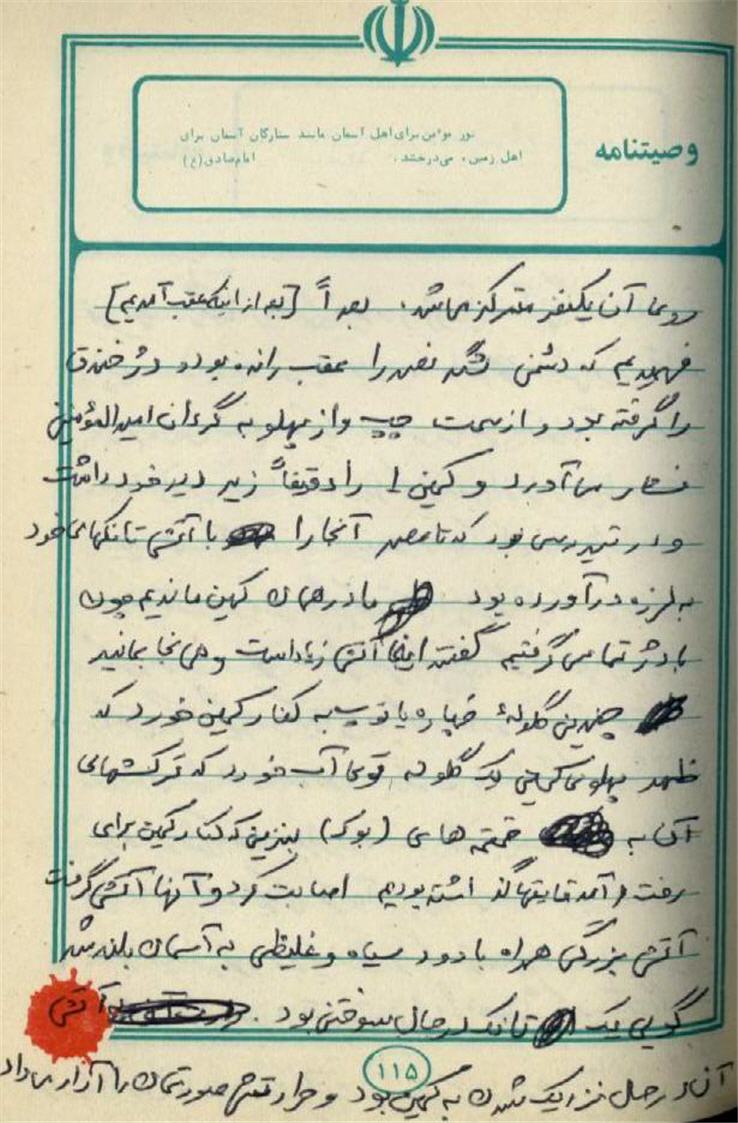 وصیتنامه
نور مؤمن برای اهل آسمان مانند ستارگان آسمان برای
اهل زمین، می‌درخشد. امام صادق (ع)
روی آن یکنفر متمرکز میباشد. بعداً [بعد از اینکه عقب آمدیم]
فهمیدیم که دشمن را عقب رانده بود و دژ خندق
را گرفته بود و از سمت چپ و از پهلو به گردان امیرالمؤمنین
فشار می‌آورد و کمین ۱ را دقیقاً زیر دید خود داشت
و در تیررس بود که تا عصر آنجا را با آتش تانکهای خود
به لرزه درآورده بود ما در همان کمین ماندیم چون
با دژ تماس گرفتیم گفتند اینجا آتش زیاد است و همانجا بمانید
چندین گلولهٔ خمپاره یا توپ به کنار کمین خورد که
ظهر پهلوی کمین یک گلوله توی آب خورد که ترکشهای
آن به های (نوک) بنزین که کنار کمین برای
رفت و آمد قایقها گذاشته بودیم اصابت کرد و آنها آتش گرفت
آتش بزرگی همراه با دود سیاه و غلیظی به آسمان بلند شد
گویی یک تانک در حال سوختن بود. آتش
۱۱۵
آن در حال نزدیک شدن به کمین بود و حرارتش صورتمان را آزار میداد